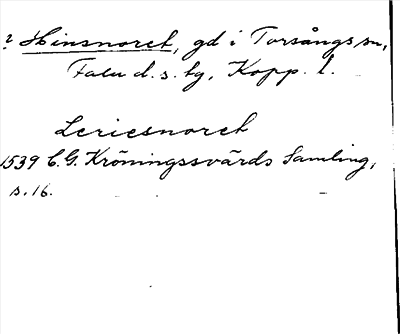 ? Hinsnoret, gd i Torsångs sn,
Falu d.s. tg, Kopp. l.
Leriesnoret
1539 C.G. Kröningssvärds Samling,
s. 16.